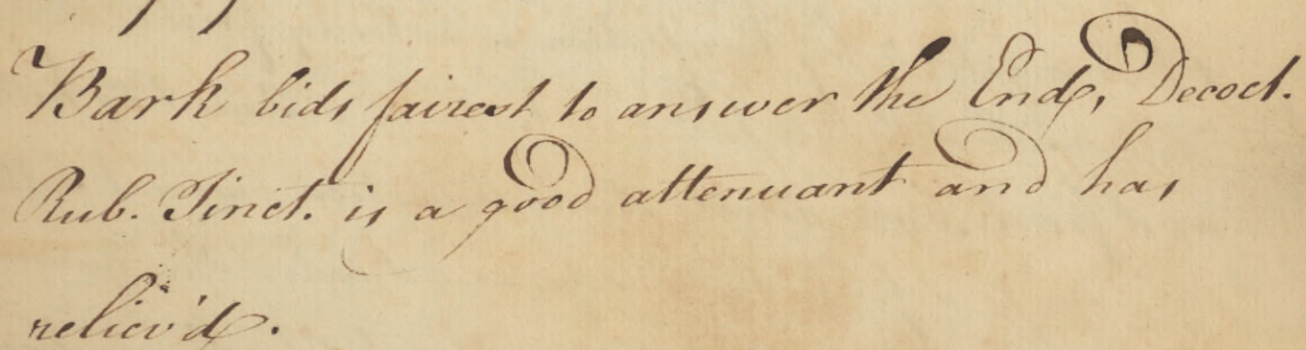 Bark bids fairest to answer the End, Decoct.
Rub. Tinct. is a good attenuant and has
reliev'd.